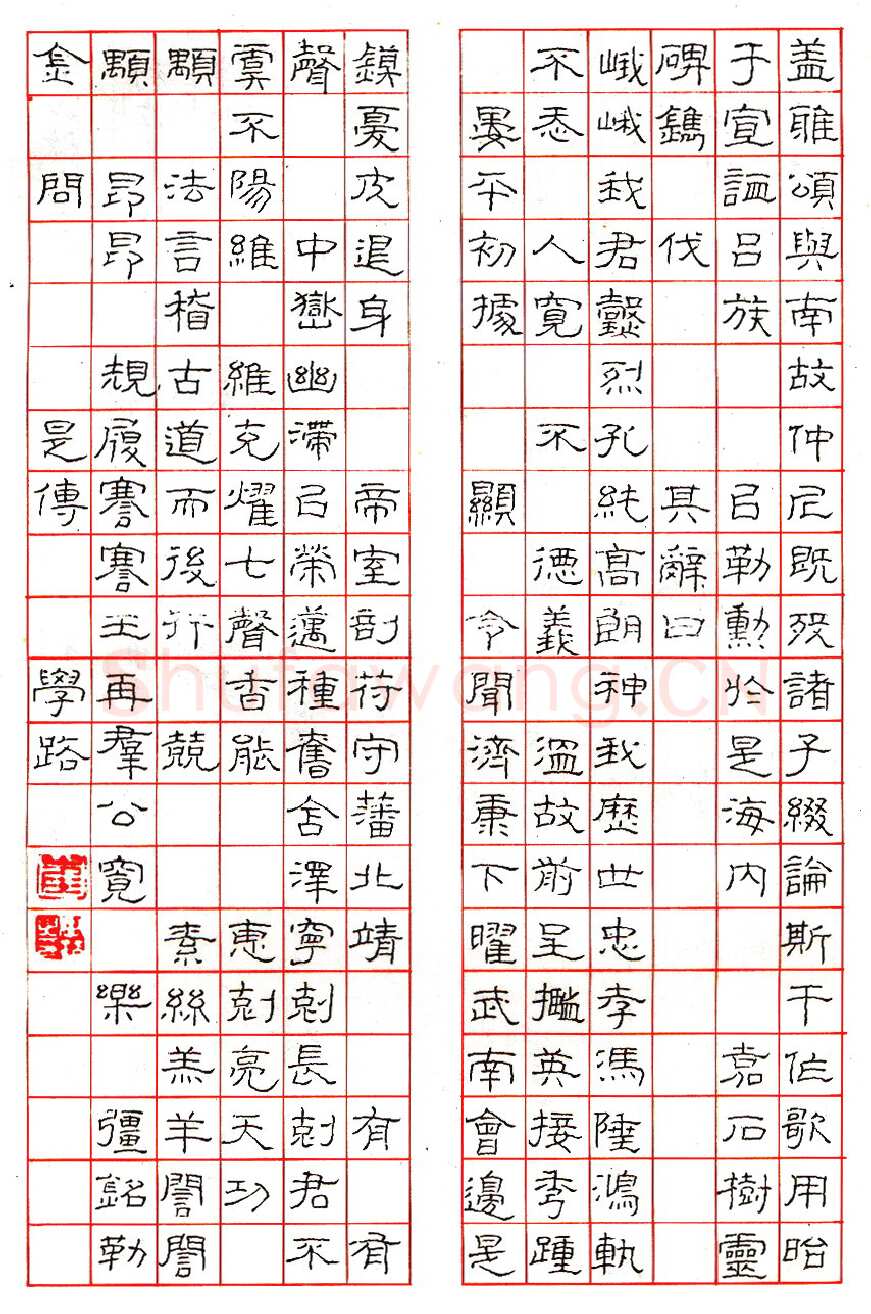 盖雎頌與南故仲尼既歿諸子綴論斯干作歌用昭
于宣謚吕族吕勒勳於是海内嘉石樹靈
碑鐫伐其辭曰
峨峨我君懿烈孔純高朗神我歷世忠孝馮隆鴻軌
不忝人寬不德義溫故前呈攬英接秀踵
晏平初據顯令聞濟康下曜武南會邊是
鎮憂及退身帝室剖符守藩北靖有有
聲中嶽幽滯吕榮邁種舊舍澤寧剋長剋君不
虞不陽維維充燿七聲香能惠剋亮天功
顒法言稽古道而後行兢素絲羔羊誾誾
顒昂昂規履謇謇王再羣公寬樂彊銘勒
金問是傳學路
Shufawang.CN